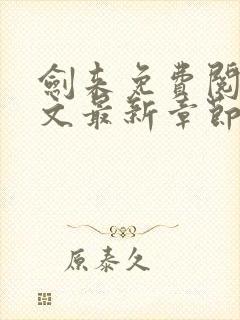 劍来免費閱
文最新章節
原泰久